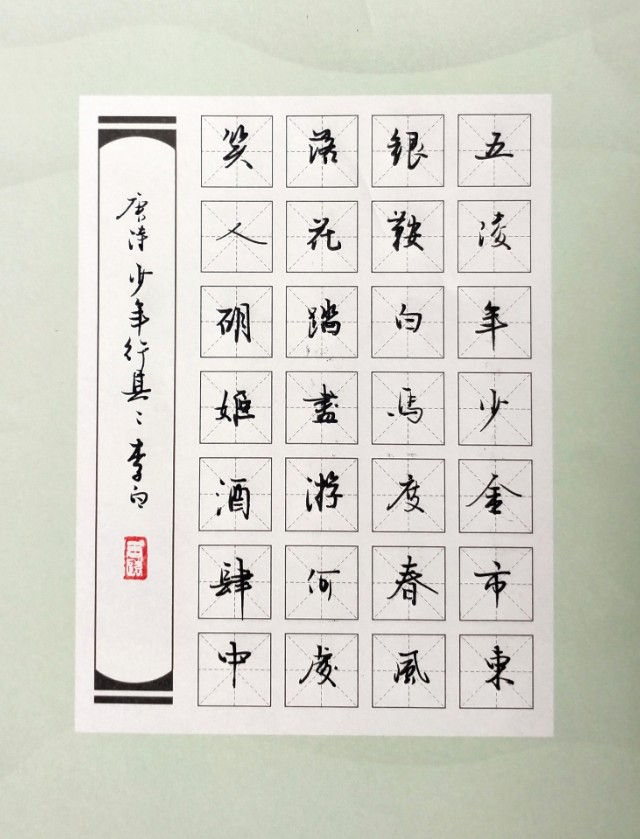 五淩年少金市東
銀鞍白馬度春風
落花踏盡游何處
笑入胡姬酒肆中
唐诗少年行其二李白